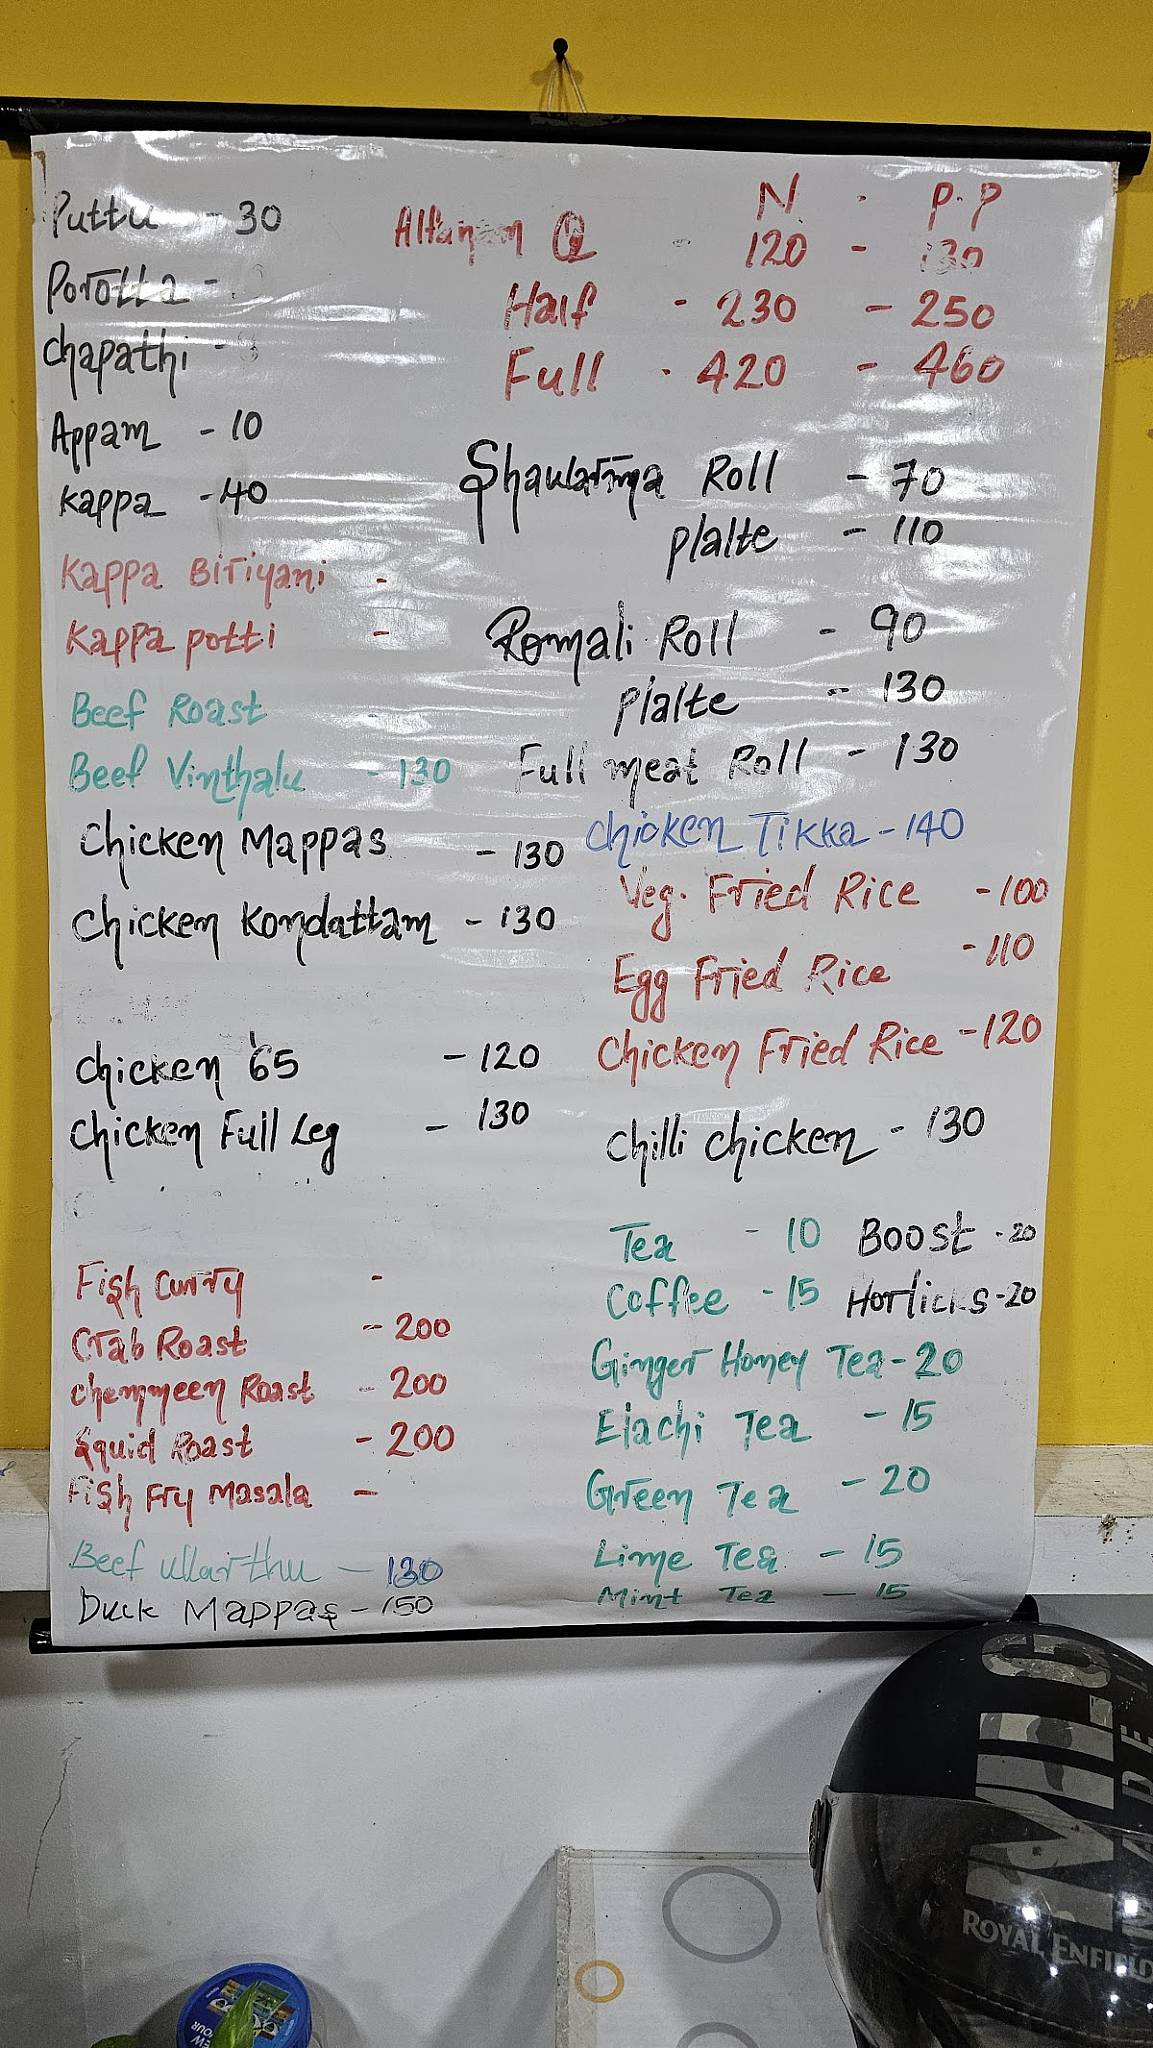 Puttu - 30
Porotta -
Chapathi -
Appam - 10
Kappa - 40
Kappa Biriyani -
Kappa potti -
Beef Roast -
Beef Vinthalu - 130
Chicken Mappas - 130
Chicken Kondattam - 130
Chicken 65 - 120
Chicken Full Leg - 130
Fish Curry -
Crab Roast - 200
Chemmeen Roast - 200
Squid Roast - 200
Fish Fry Masala -
Beef ullarthu - 130
Duck Mappas - 150
N . P.P
Alfanam Q - 120 - 130
Half - 230 - 250
Full - 420 - 460
Shawarma Roll - 70
plalte - 110
Romali Roll - 90
plalte - 130
Full meat Roll - 130
Chicken Tikka - 140
Veg. Fried Rice - 100
Egg Fried Rice - 110
Chicken Fried Rice - 120
Chilli Chicken - 130
Tea - 10 Boost - 20
Coffee - 15 Horlicks - 20
Ginger Honey Tea - 20
Elachi Tea - 15
Green Tea - 20
Lime Tea - 15
Mint Tea - 15
ROYAL ENFIELD